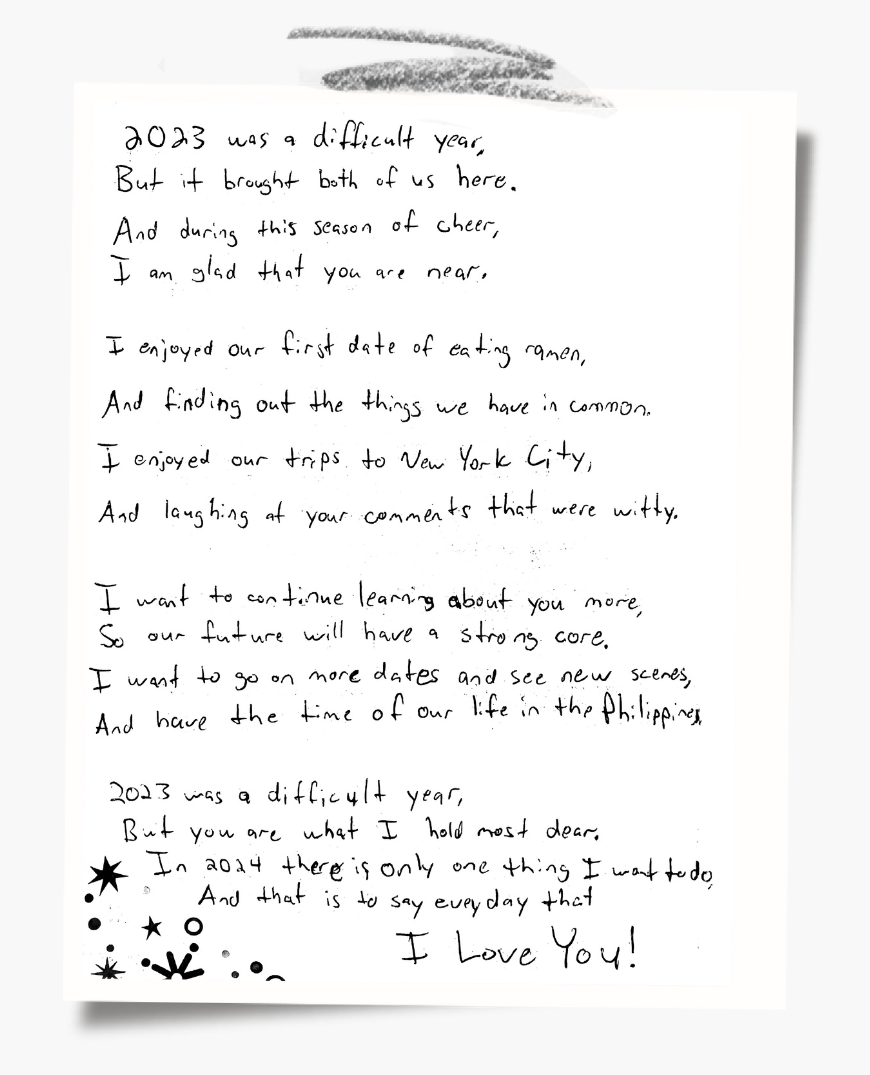 2023 was a difficult year,
But it brought both of us here.
And during this season of cheer,
I am glad that you are near.
I enjoyed our first date of eating ramen,
And finding out the things we have in common.
I enjoyed our trips to New York City,
And laughing at your comments that were witty.
I want to continue learning about you more,
So our future will have a strong core.
I want to go on more dates and see new scenes,
And have the time of our life in the Philippines,
2023 was a difficult year,
But you are what I hold most dear.
In 2024 there is only one thing I want to do,
And that is to say everyday that
I Love You!